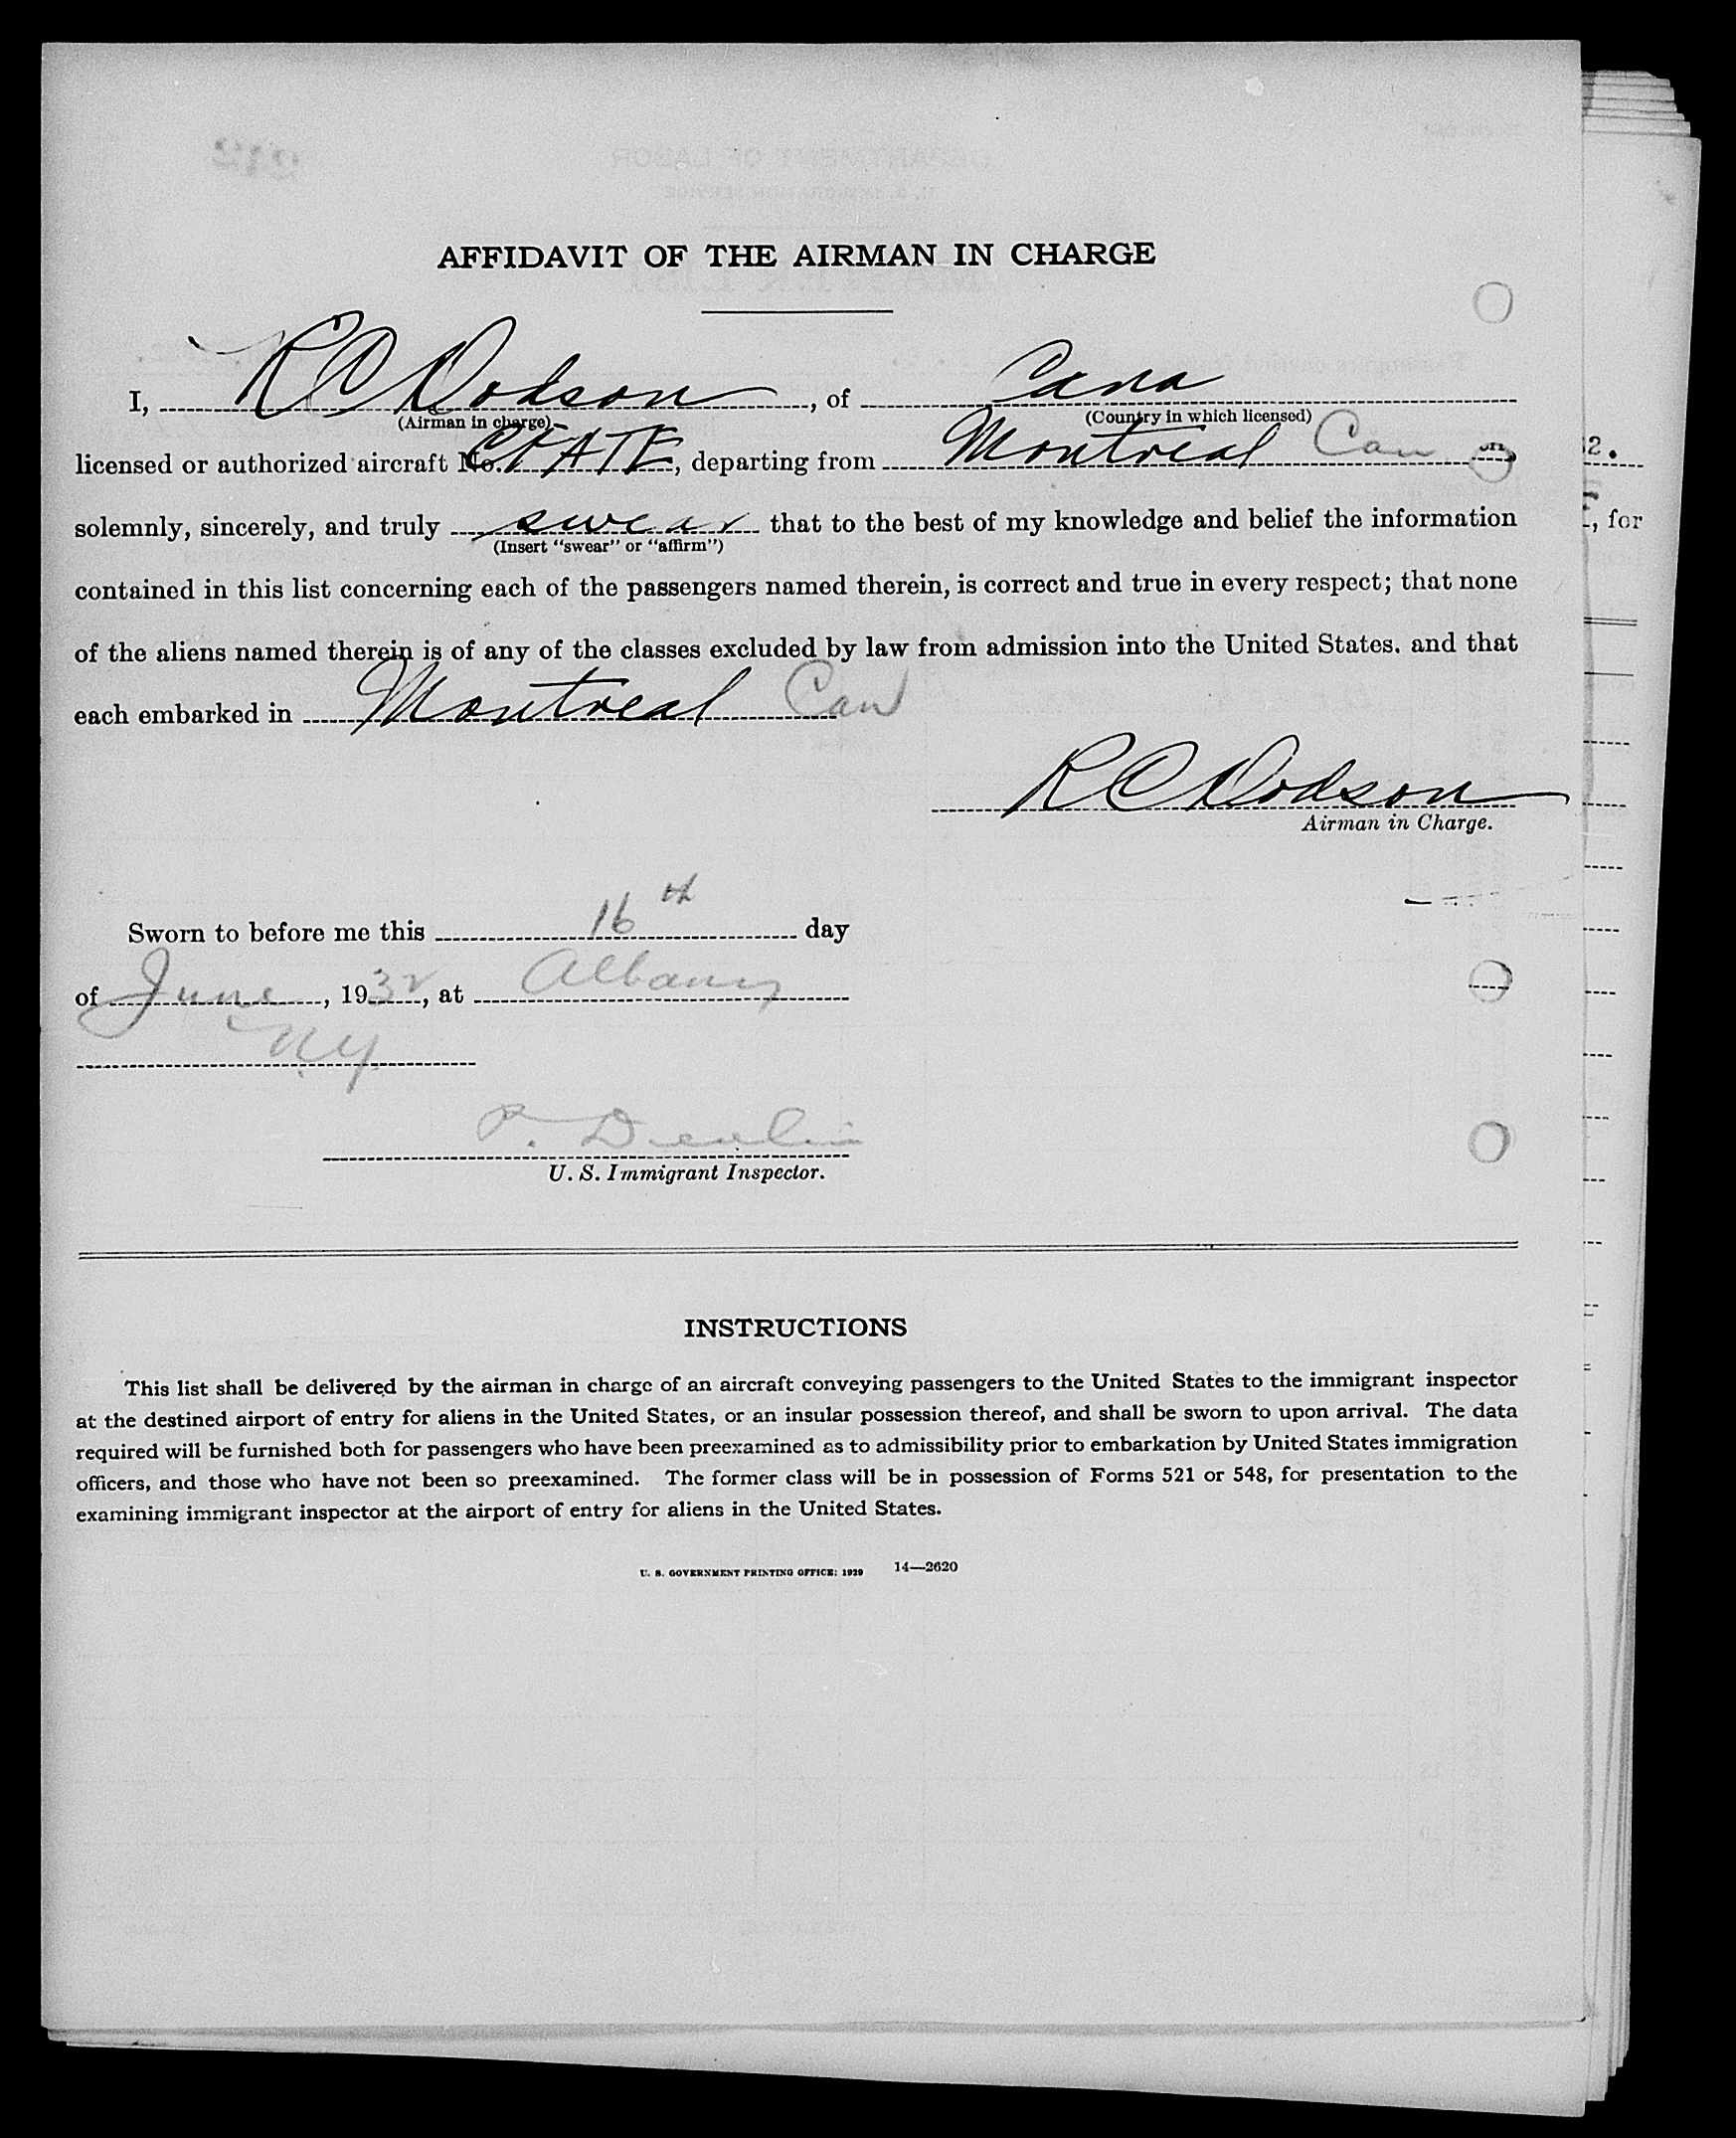 AFFIDAVIT OF THE AIRMAN IN CHARGE
I, R C Dodson, of Cana
(Airman in charge) (Country in which licensed)
licensed or authorized aircraft No. CFATE, departing from Montreal Can
solemnly, sincerely, and truly swear that to the best of my knowledge and belief the information
(Insert "swear" or "affirm")
contained in this list concerning each of the passengers named therein, is correct and true in every respect; that none
of the aliens named therein is of any of the classes excluded by law from admission into the United States. and that
each embarked in Montreal Can
R C Dodson
Airman in Charge.
Sworn to before me this 16th day
of June, 1932, at Albany
N.Y.
P. Devlin
U. S. Immigrant Inspector.
INSTRUCTIONS
This list shall be delivered by the airman in charge of an aircraft conveying passengers to the United States to the immigrant inspector
at the destined airport of entry for aliens in the United States, or an insular possession thereof, and shall be sworn to upon arrival. The data
required will be furnished both for passengers who have been preexamined as to admissibility prior to embarkation by United States immigration
officers, and those who have not been so preexamined. The former class will be in possession of Forms 521 or 548, for presentation to the
examining immigrant inspector at the airport of entry for aliens in the United States.
U. S. GOVERNMENT PRINTING OFFICE: 1929 14—2620
2.
, for